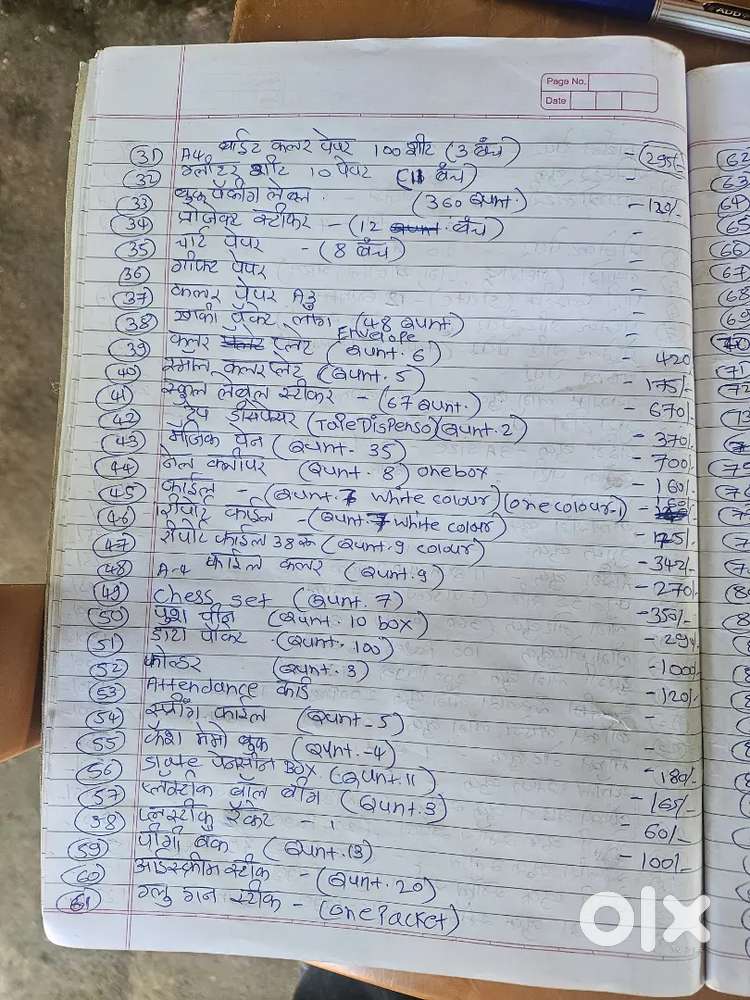 Page No.
Date
31 A4 वाईट कलर पेपर 100 शीट (3 बंच) - 295/-
32 ग्लीटर शीट 10 पेपर (11 बंच) -
33 बुक पॅकींग लेबल. (360 Qunt.) - 120/-
34 प्रोजेक्ट स्टीकर - (12 बंच) -
35 चार्ट पेपर - (8 बंच) -
36 गीफ्ट पेपर -
37 कलर पेपर A3 -
38 खाकी पॅकेट लाँग (48 Qunt) Envelope -
39 कलर प्लेट (Qunt. 6) - 420
40 स्मॉल कलर प्लेट (Qunt. 5) - 175/-
41 स्कुल लेबल स्टीकर - (67 Qunt.) - 670/-
42 टेप डीसपेंसर (Tape Dispenso) (Qunt. 2) - 370/-
43 मॅजिक पेन (Qunt - 35) - 700/-
44 नेल क्लीपर (Qunt. 8) one box - 160/-
45 फाईल - (Qunt. 7 white colour) (one colour-1) - 160/-
46 रीपोर्ट फाईल - (Qunt. 7 white colour) - 175/-
47 रीपोर्ट फाईल 38 रू (Qunt. 9 colour) - 342/-
48 A-4 फाईल कलर (Qunt. 9) - 270/-
49 chess set (Qunt. 7) - 350/-
50 पुश पीन (Qunt. 10 box) - 290/-
51 डाटा पॉकेट (Qunt. 100) - 1000/-
52 फोल्डर (Qunt. 3) - 120/-
53 Attendance कार्ड -
54 स्प्रींग फाईल (Qunt - 5) -
55 कॅश मेमो बुक (Qunt. - 4) - 180/-
56 पेनसील Box (Qunt. 11) - 165/-
57 प्लॅस्टीक बॉल बीग (Qunt. 3) - 60/-
58 प्लस्टीक रॅकेट - 1 - 100/-
59 पीगी बँक (Qunt. 13)
60 आईस्क्रीम स्टीक - (Qunt. 20)
61 ग्लु गन स्टीक - (one Packet)
62
63
64
65
66
67
68
69
70
71
72
olx